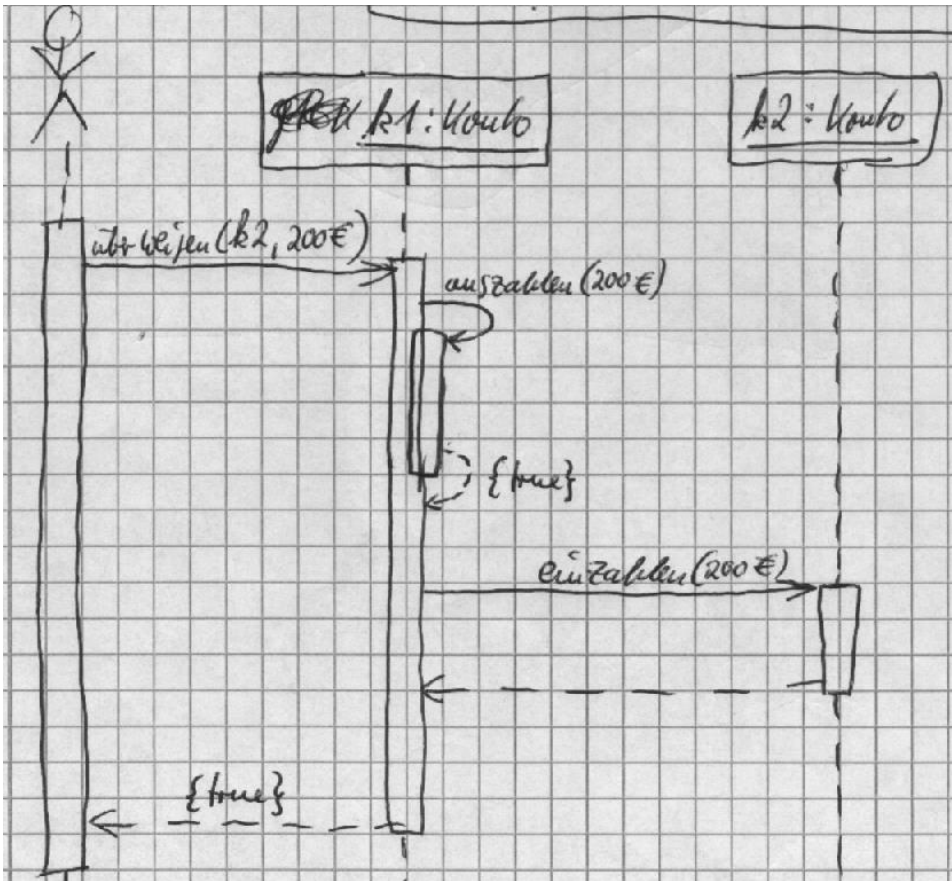 k1 : Konto
k2 : Konto
überweisen (k2, 200€)
auszahlen (200€)
{true}
einzahlen (200€)
{true}